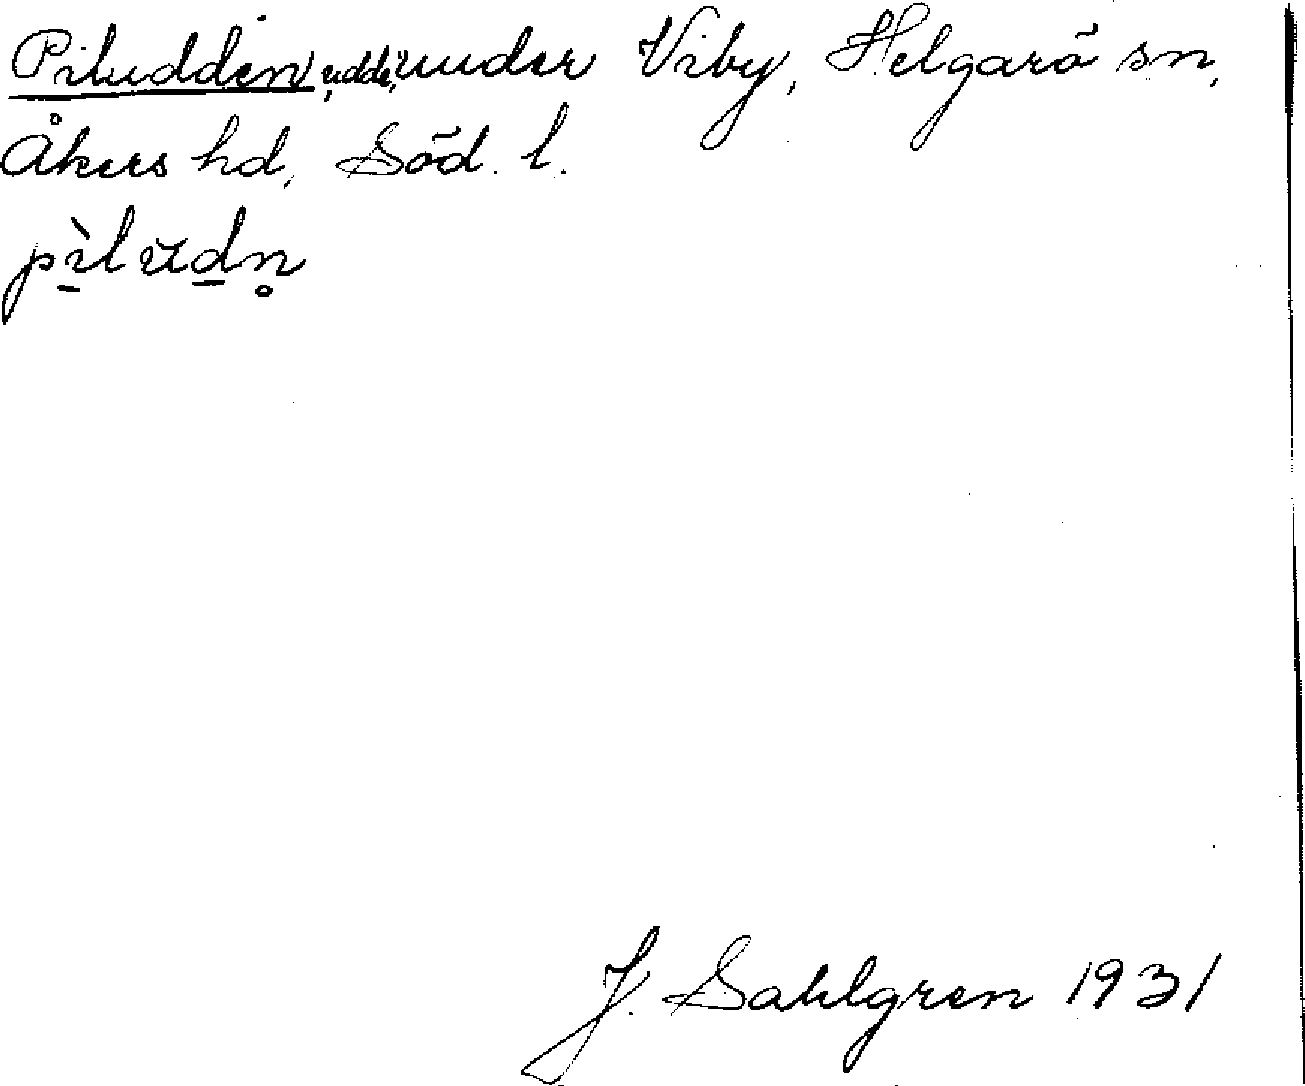 Piludden, udde, under Viby, Helgarö sn,
Åkers hd, Söd. l.
pı̱̀lŭḏn̥
J. Sahlgren 1931